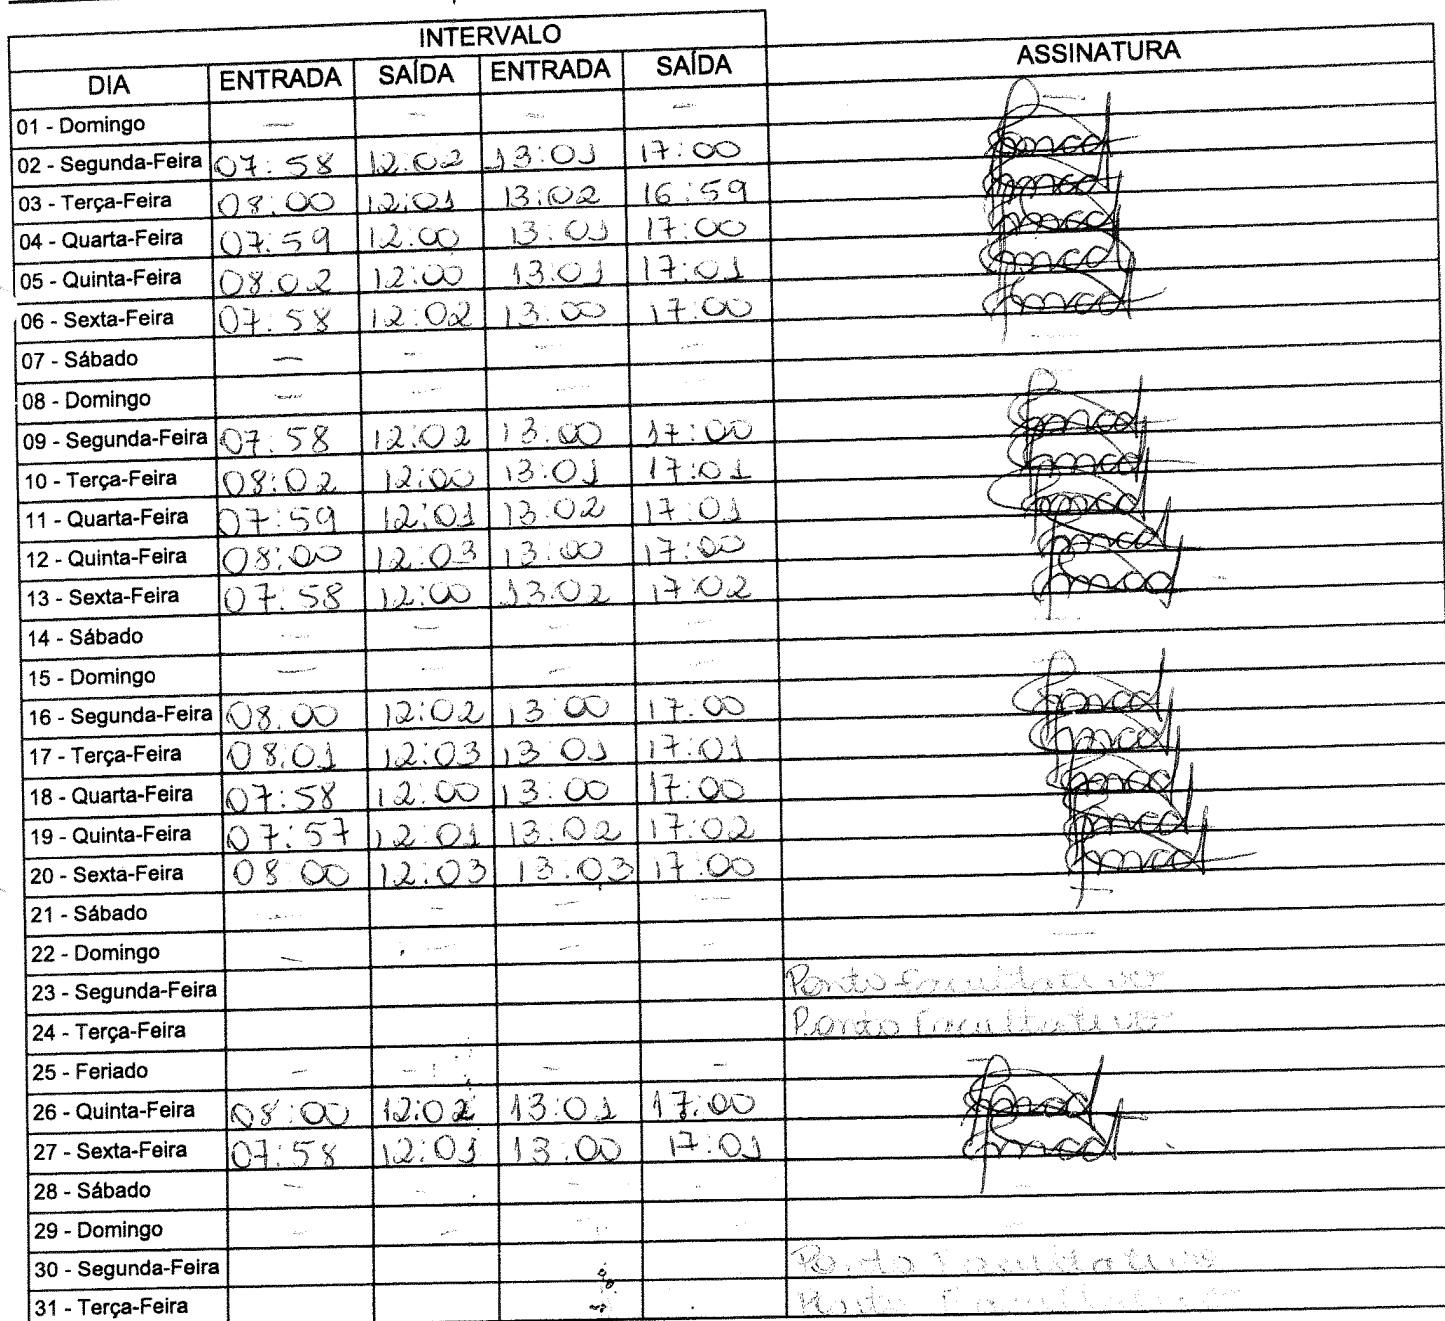 INTERVALO
DIA ENTRADA SAÍDA ENTRADA SAÍDA ASSINATURA
01 - Domingo — — — — —
02 - Segunda-Feira 07:58 12:02 13:01 17:00
03 - Terça-Feira 08:00 12:01 13:02 16:59
04 - Quarta-Feira 07:59 12:00 13:01 17:00
05 - Quinta-Feira 08:02 12:00 13:01 17:01
06 - Sexta-Feira 07:58 12:02 13:00 17:00
07 - Sábado — — — — —
08 - Domingo — — — — —
09 - Segunda-Feira 07:58 12:02 13:00 17:00
10 - Terça-Feira 08:02 12:00 13:01 17:01
11 - Quarta-Feira 07:59 12:01 13:02 17:01
12 - Quinta-Feira 08:00 12:03 13:00 17:00
13 - Sexta-Feira 07:58 12:00 13:02 17:02
14 - Sábado — — — — —
15 - Domingo — — — — —
16 - Segunda-Feira 08:00 12:02 13:00 17:00
17 - Terça-Feira 08:01 12:03 13:01 17:01
18 - Quarta-Feira 07:58 12:00 13:00 17:00
19 - Quinta-Feira 07:57 12:01 13:02 17:02
20 - Sexta-Feira 08:00 12:03 13:03 17:00
21 - Sábado — — — — —
22 - Domingo — — — — —
23 - Segunda-Feira Ponto Facultativo
24 - Terça-Feira Ponto Facultativo
25 - Feriado — — — — —
26 - Quinta-Feira 08:00 12:02 13:01 17:00
27 - Sexta-Feira 07:58 12:01 13:00 17:01
28 - Sábado — — — —
29 - Domingo — — — — —
30 - Segunda-Feira Ponto Facultativo
31 - Terça-Feira Facultativo